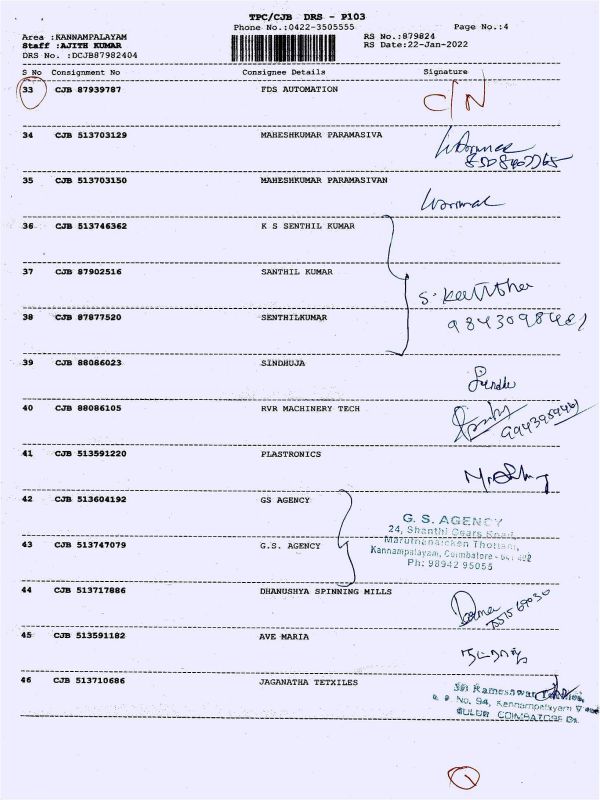 TPC/CJB DRS - P103
Phone No.:0422-3505555 Page No.:4
Area :KANNAMPALAYAM RS No.:879824
Staff :AJITH KUMAR RS Date:22-Jan-2022
DRS No. :DCJB87982404
S No Consignment No Consignee Details Signature
33 CJB 87939787 FDS AUTOMATION C/N
34 CJB 513703129 MAHESHKUMAR PARAMASIVA
35 CJB 513703150 MAHESHKUMAR PARAMASIVAN
36 CJB 513746362 K S SENTHIL KUMAR
37 CJB 87902516 SANTHIL KUMAR
38 CJB 87877520 SENTHILKUMAR
39 CJB 88086023 SINDHUJA
40 CJB 88086105 RVR MACHINERY TECH
41 CJB 513591220 PLASTRONICS
42 CJB 513604192 GS AGENCY
G. S. AGENCY
24, Shanthi Gears Road,
43 CJB 513747079 G.S. AGENCY
Kannampalayam, Coimbatore - 641 402
Ph: 98942 95055
44 CJB 513717886 DHANUSHYA SPINNING MILLS
45 CJB 513591182 AVE MARIA
46 CJB 513710686 JAGANATHA TETXILES
Sri Rameshwar
No. 94, Kannampalayam
SULUR COIMBATORE